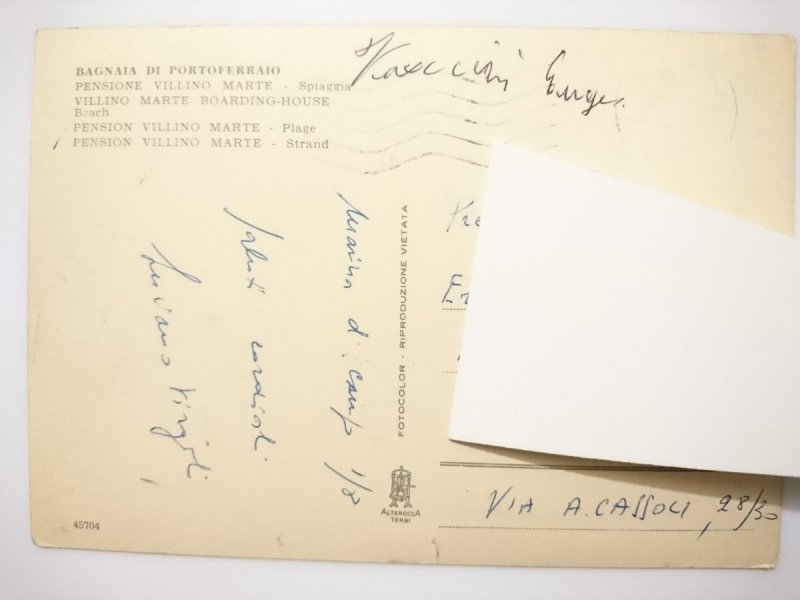 BAGNAIA DI PORTOFERRAIO
PENSIONE VILLINO MARTE - Spiaggia
VILLINO MARTE BOARDING-HOUSE
Beach
PENSION VILLINO MARTE - Plage
PENSION VILLINO MARTE - Strand
Marina di Camp 1/8
Saluti cordiali
Luciano Virgili
FOTOCOLOR - RIPRODUZIONE VIETATA
ALTEROCCA
TERNI
VIA A. CASSOLI, 28/30
45704